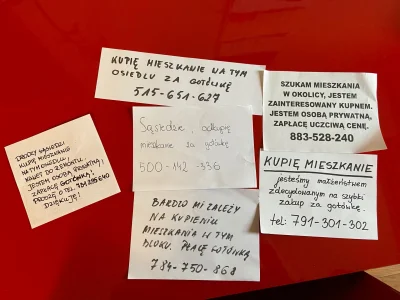 KUPIĘ MIESZKANIE NA TYM
OSIEDLU ZA GOTÓWKĘ
515-651-627
SZUKAM MIESZKANIA
W OKOLICY, JESTEM
ZAINTERESOWANY KUPNEM.
JESTEM OSOBĄ PRYWATNĄ,
ZAPŁACĘ UCZCIWĄ CENĘ.
883-528-240
Sąsiedzie, odkupię
mieszkanie za gotówkę
500-142-336
DRODZY SĄSIEDZI
KUPIĘ MIESZKANIE
NA TYM OSIEDLU,
NAWET DO REMONTU.
JESTEM OSOBĄ PRYWATNĄ!
ZAPŁACĘ GOTÓWKĄ!
PROSZĘ O TEL.
DZIĘKUJĘ!
KUPIĘ MIESZKANIE
jesteśmy małżeństwem
zdecydowanym na szybki
zakup za gotówkę.
tel: 791-301-302
BARDZO MI ZALEŻY
NA KUPIENIU
MIESZKANIA W TYM
BLOKU. PŁACĘ GOTÓWKĄ
784-750-868